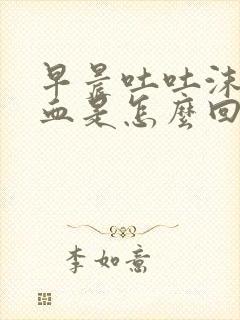 早晨吐吐沫
血是怎麼回
李如意